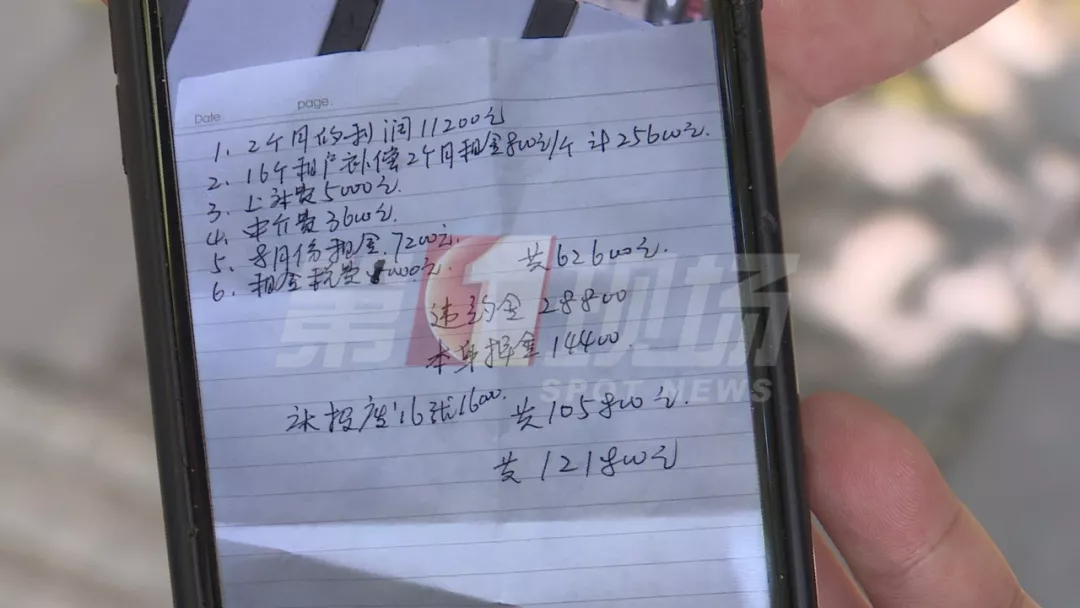 Date page.
1. 2个月的利润11200元
2. 16个租户补偿2个月租金800元/个 计25600元.
3. 上 费5000元.
4. 中介费3600元.
5. 8月份租金.7200元.
6. 租金税费
共62600元.
违约金28800
本身押金14400.
16张
共105800元.
共121800元
第1现场
SPOT NEWS